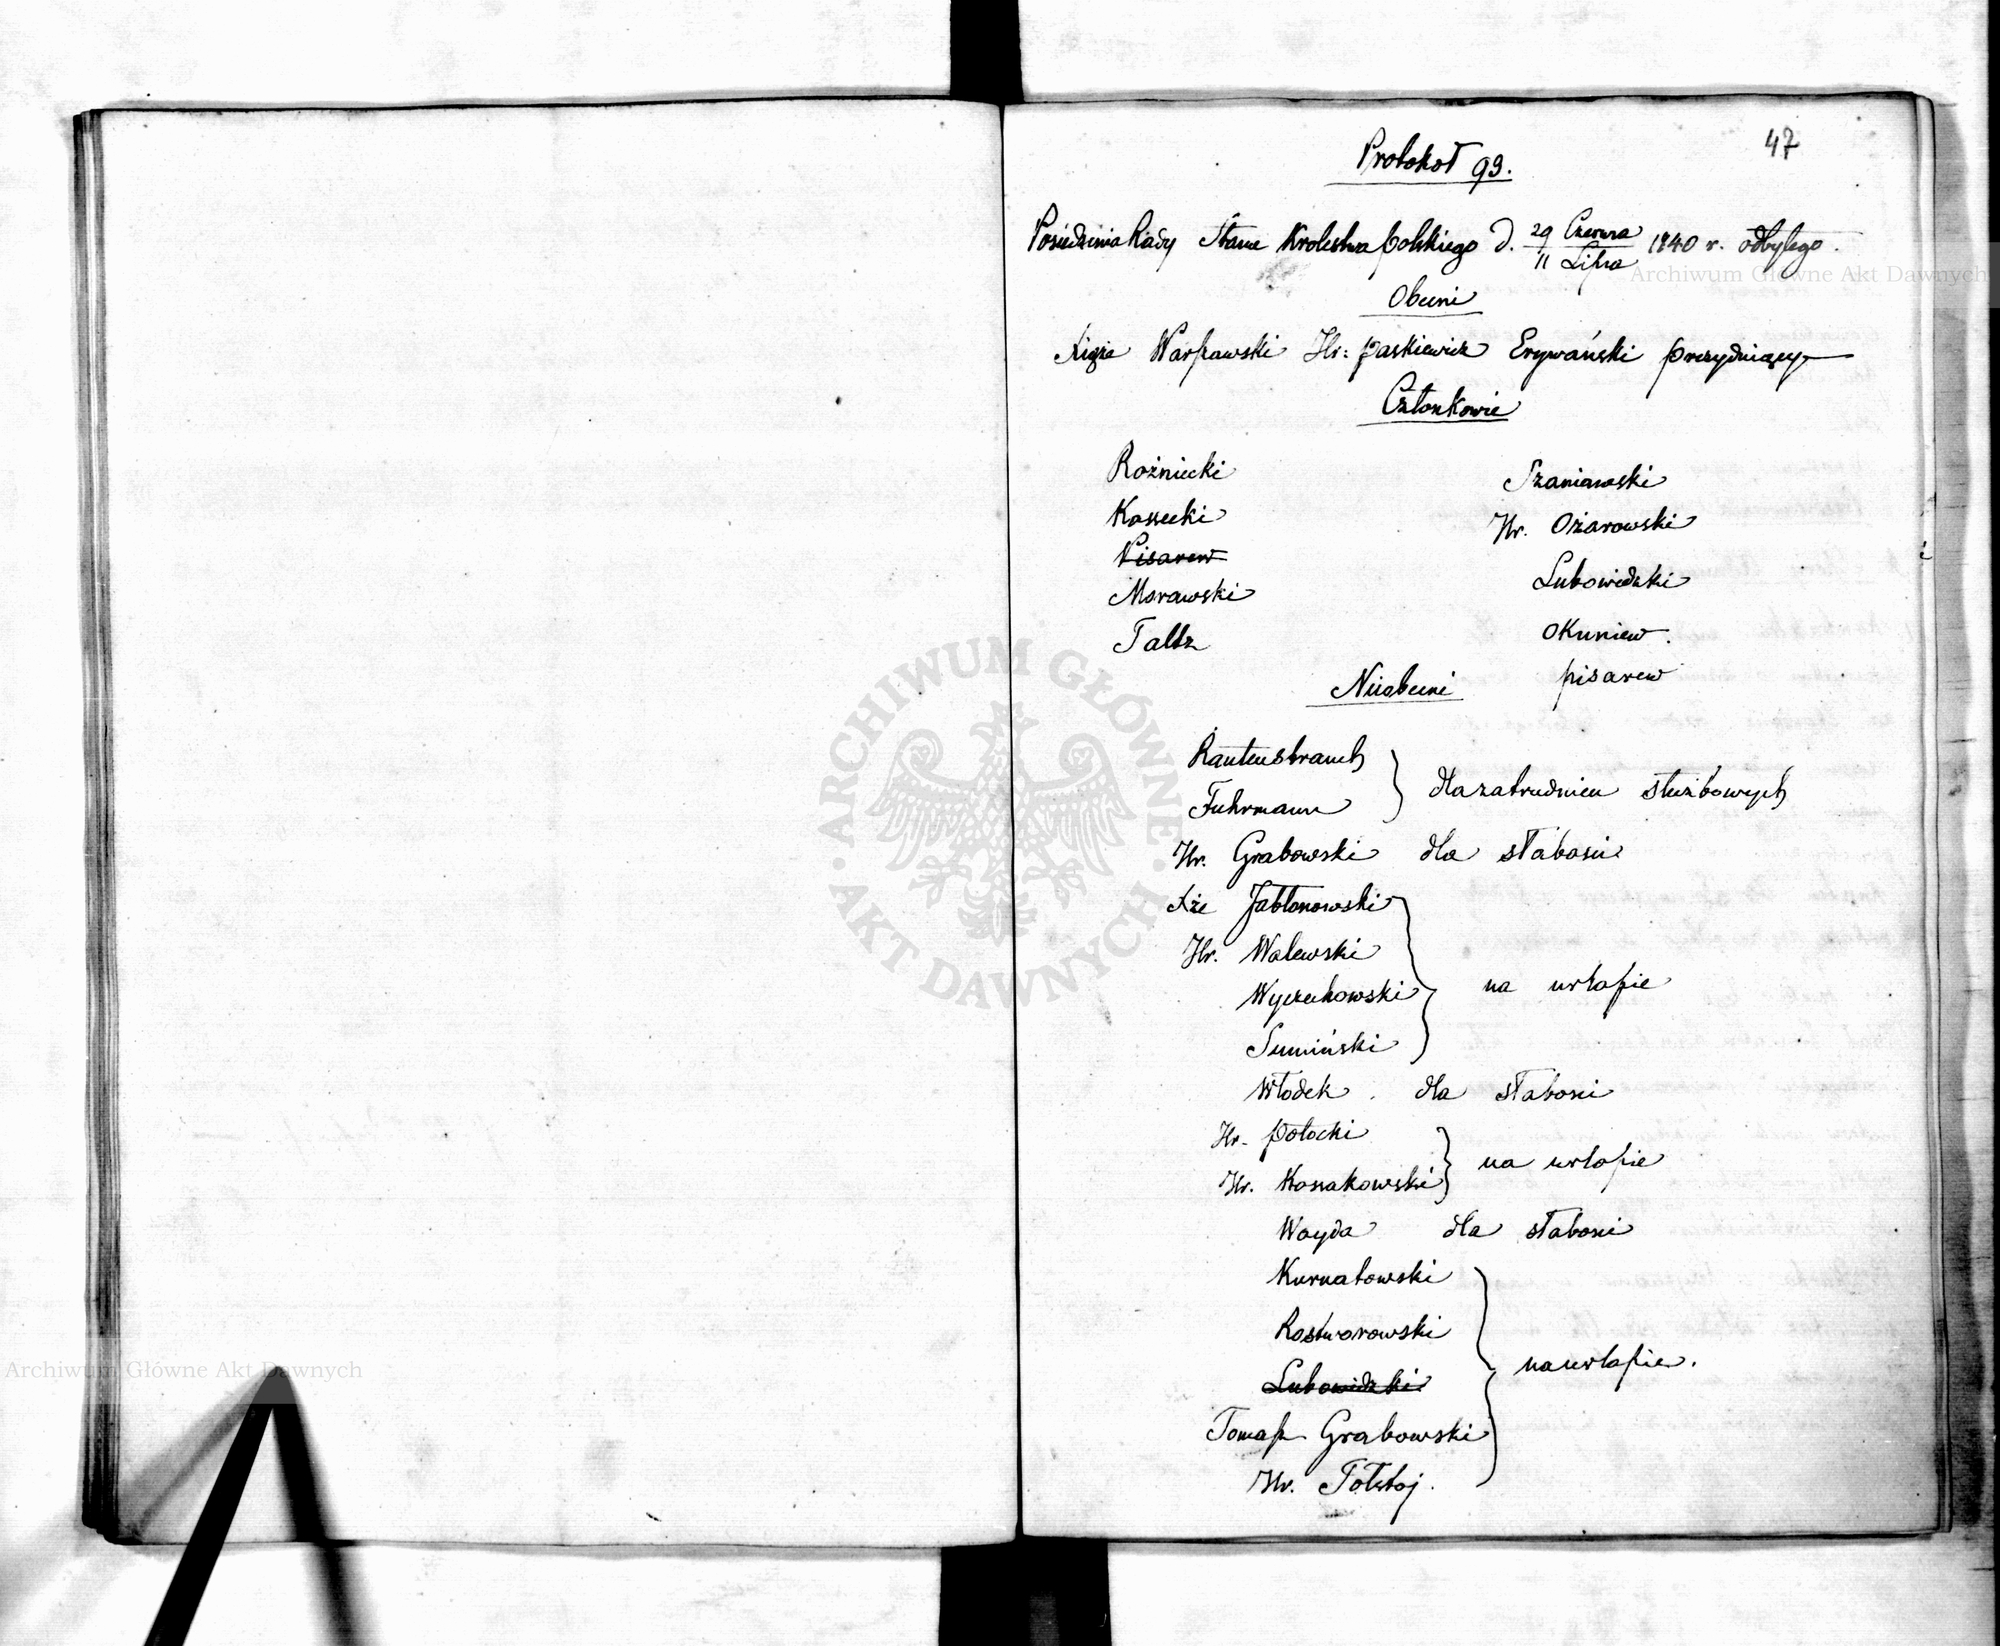 47
Protokoł 93.
Posiedzenia Rady Stanu Krolestwa Polskiego d. 29 Czerwca / 11 Lipca 1840 r. odbytego.
Obecni
Xiąże Warszawski Hr: Paskiewicz Erywański prezydujący
Członkowie
Rożniecki
Kossecki
Pisarew
Morawski
Taltz
Szaniawski
Hr. Ożarowski
Lubowidzki
Okuniew.
Pisarew
Nieobecni
Rautenstrauch
Fuhrmann
dla zatrudnień służbowych
Hr. Grabowski dla słabości
Xże Jabłonowski
Hr. Walewski
Wyczechowski
Sumiński
na urlopie
Włodek dla słabości
Hr. Potocki
Hr. Kossakowski
na urlopie
Woyda dla słabości
Kurnatowski
Rostworowski
Lubowidzki
Tomasz Grabowski
Hr. Tołstoj.
na urlopie.
Archiwum Główne Akt Dawnych
Archiwum Główne Akt Dawnych
ARCHIWUM GŁÓWNE · AKT DAWNYCH ·